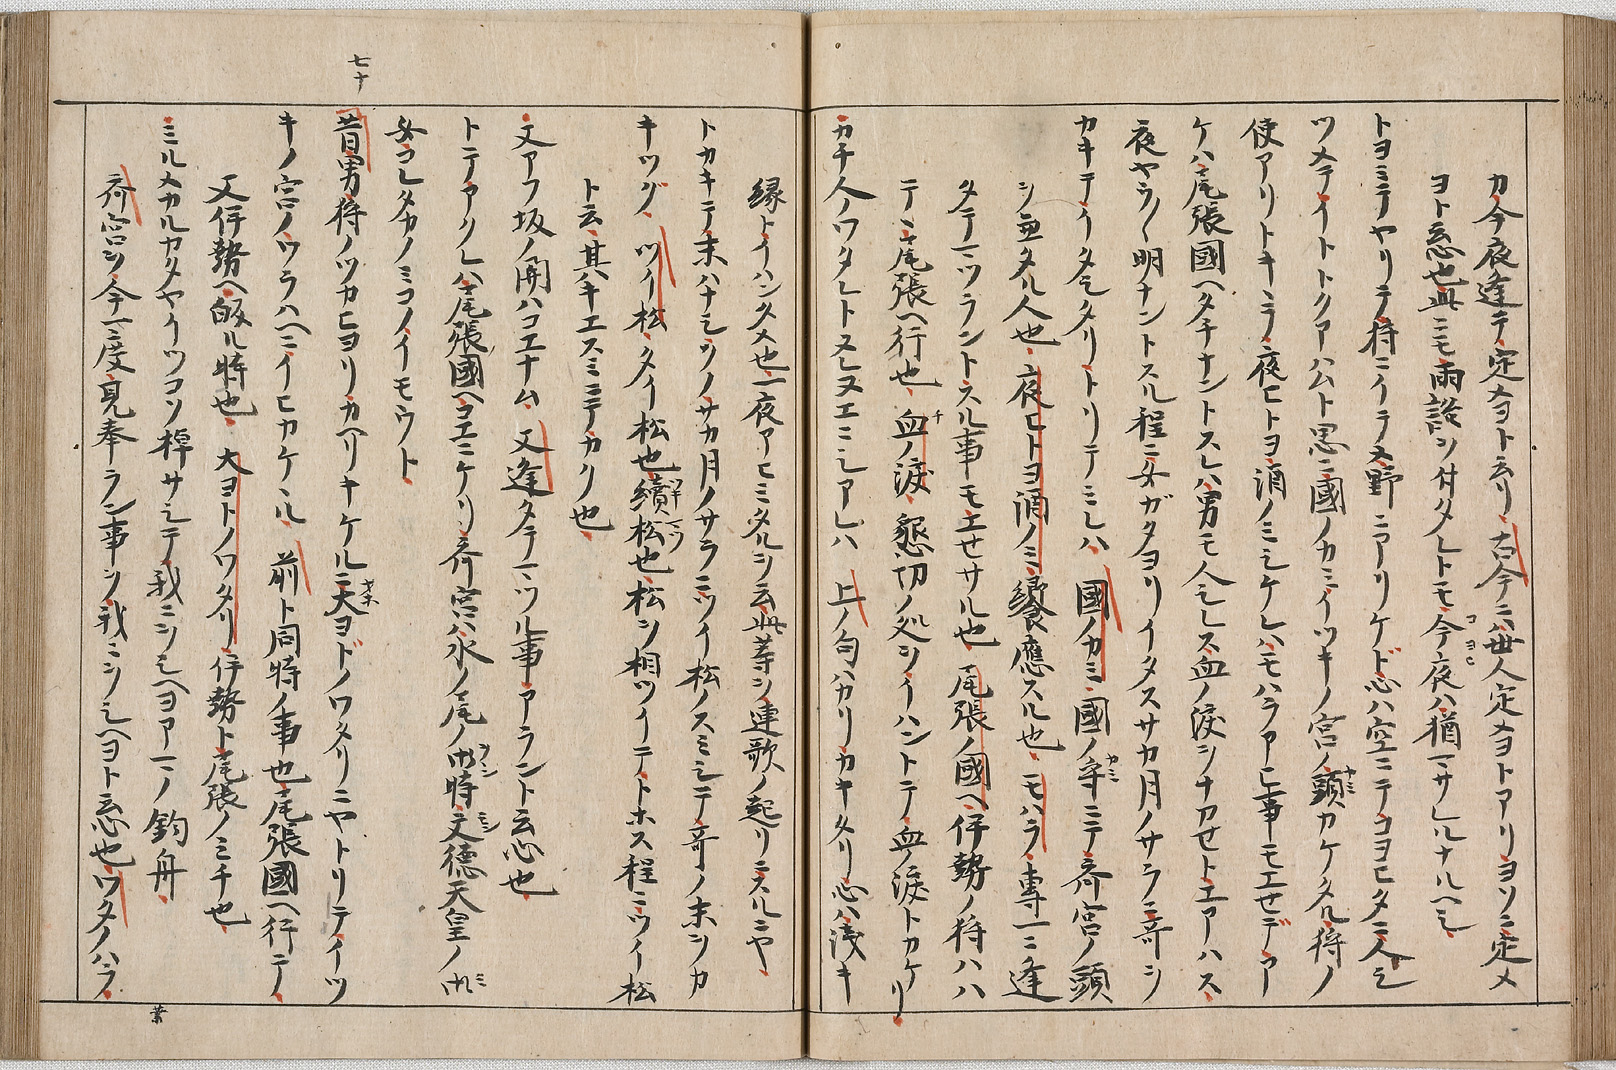 カ今夜逢テ定メヨト云リ古今ニハ世人定メヨトアリヨソニ定メ
ヨト云心也此ニモ両説ヲ付タレトモ今夜ハ猶マサレルナルヘシ
コヨヒ
トヨミテヤリテ狩ニイテヌ野ニアリケド心ハ空ニテコヨヒタニ人シ
ツメテイトトクアハムト思ニ國ノカミイツキノ宮ノ頭カケタル狩ノ
カミ
使アリトキヽテ夜ヒトヨ酒ノミシケレハモハラアヒ事モエセデア
ケハ尾張國ヘタチナントスレハ男モ人シレス血ノ淚ヲナカセトエアハス
夜ヤウ〱明ナントスル程ニ女ガタヨリイタスサカ月ノサラニ哥ヲ
カキテイタシタリトリテミレハ 國ノカミ 國ノ守ニテ斎宮ノ頭
カミ
ヲ兼タル人也 夜ヒトヨ酒ノミ 饗應スル也 モハラ 專一ニ逢
タテマツラントスル事モエセサル也 尾張ノ國ヘ 伊勢ノ狩ハハ
テヽ尾張ヘ行也 血ノ淚 懇切ノ処ヲイハントテ血ノ淚トカケリ
チ
カチ人ノワタレトヌレヌエニシアレハ 上ノ句ハカリカキタリ心ハ浅キ
縁トイハンタメ也一夜アヒミタルヲ云此等ヲ連歌ノ起リニスルニヤ
トカキテ末ハナシソノサカ月ノサラニツイ松ノスミシテ哥ノ末ヲカ
キツグ ツイ松 タイ松也續松也松ヲ相ツイテトホス程ニツイ松
ト云其ハキエスミニテカク也
又アフ坂ノ関ハコエナム 又逢タテマツル事アラント云心也
トテアクレハ尾張國ヘコエニケリ斎宮ハ水ノ尾ノ御時文德天皇ノ御
女コレタカノミコノイモウト
七十
昔男狩ノツカヒヨリカヘリキケルニ大ヨドノワタリニヤトリテイツ
キノ宮ノワラハヘニイヒカケヽル 前ト同時ノ事也尾張國ヘ行テ
又伊勢ヘ皈ル時也 大ヨトノワタリ 伊勢ト尾張ノミチ也
ミルメカルカタヤイツコソ棹サシテ我ニヲシヘヨアマノ釣舟
斎宮ヲ今一度見奉ラン事ヲ我ニヲシヘヨト云心也ワタノハラ
葉